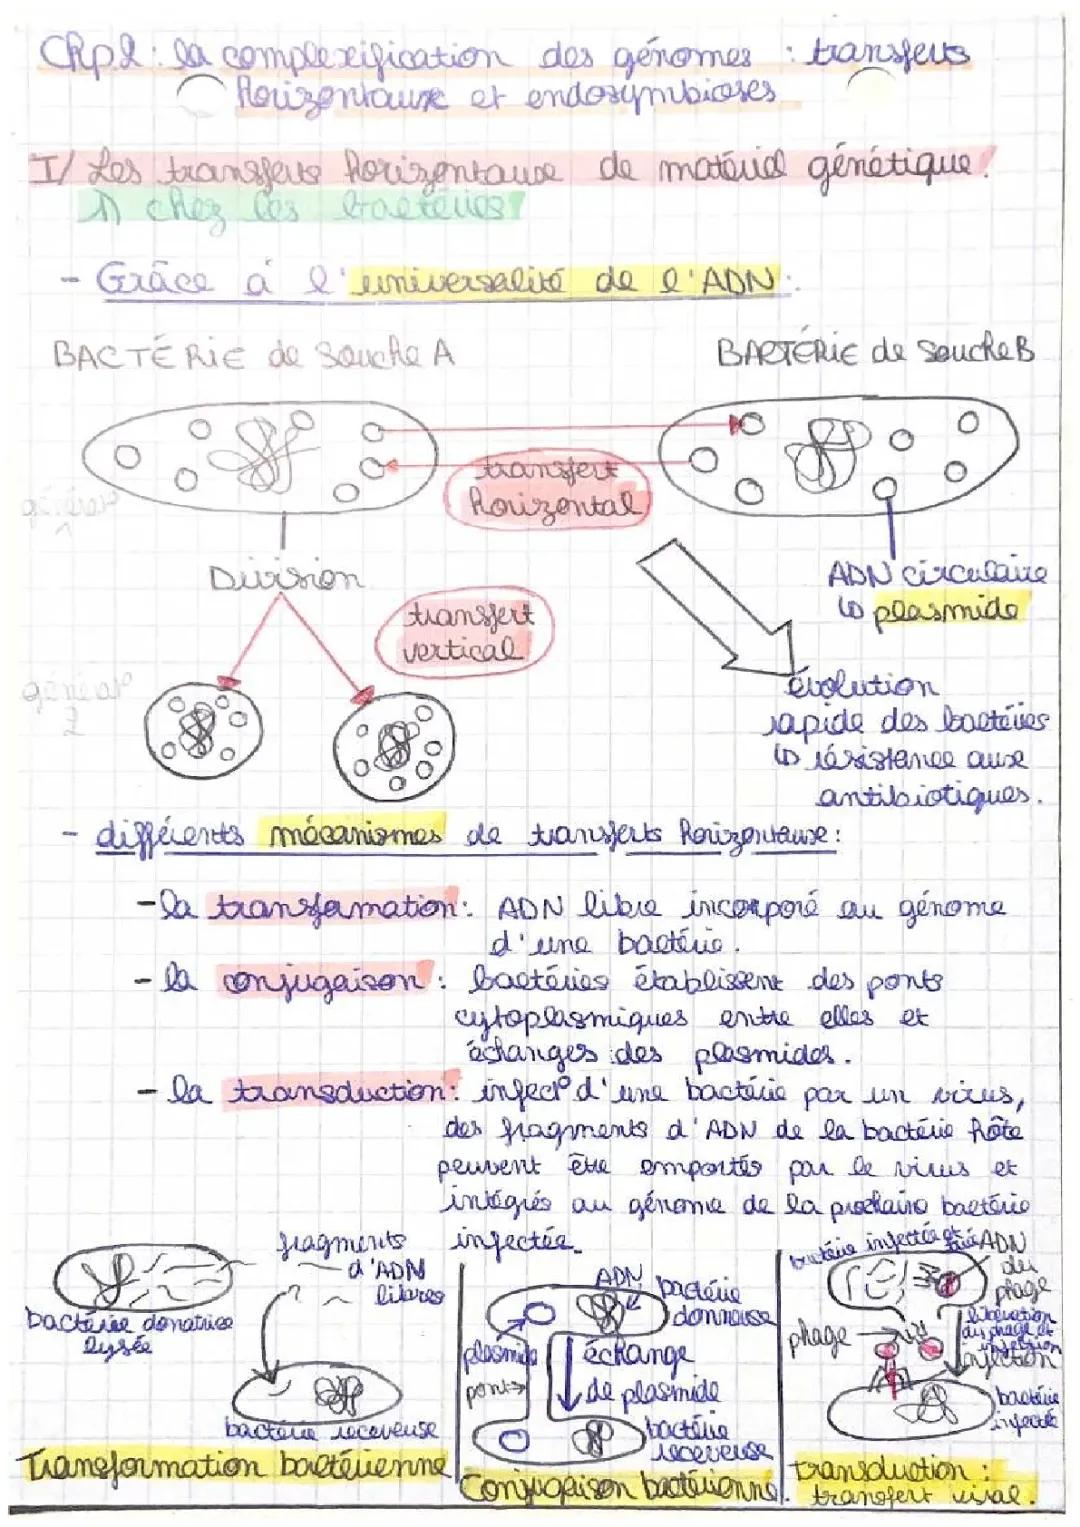 Chp2 : la complexification des génomes : transferts
horizontaux et endosymbioses
I/ Les transferts horizontaux de matériel génétique.
1) chez les bactéries
- Grâce à l'universalité de l'ADN :
BACTÉRIE de souche A
BACTÉRIE de souche B
transfert
horizontal
Division
ADN circulaire
↳ plasmide
transfert
vertical
évolution
rapide des bactéries
↳ résistance aux
antibiotiques.
- différents mécanismes de transferts horizontaux :
- la transformation : ADN libre incorporé au génome
d'une bactérie.
- la conjugaison : bactéries établissent des ponts
cytoplasmiques entre elles et
échanges des plasmides.
- la transduction : infecto d'une bactérie par un virus,
des fragments d'ADN de la bactérie hôte
peuvent être emportés par le virus et
intégrés au génome de la prochaine bactérie
infectée.
fragments
d'ADN
libres
bactérie donatrice
lysée
bactérie receveuse
Transformation bactérienne
ADN
bactérie
donneuse
plasmide
échange
de plasmide
ponts
bactérie
receveuse
Conjugaison bactérienne.
bactérie infectée et
ADN
du
phage
phage
libération
du phage et
injection
bactérie
infectée
transduction :
transfert viral.